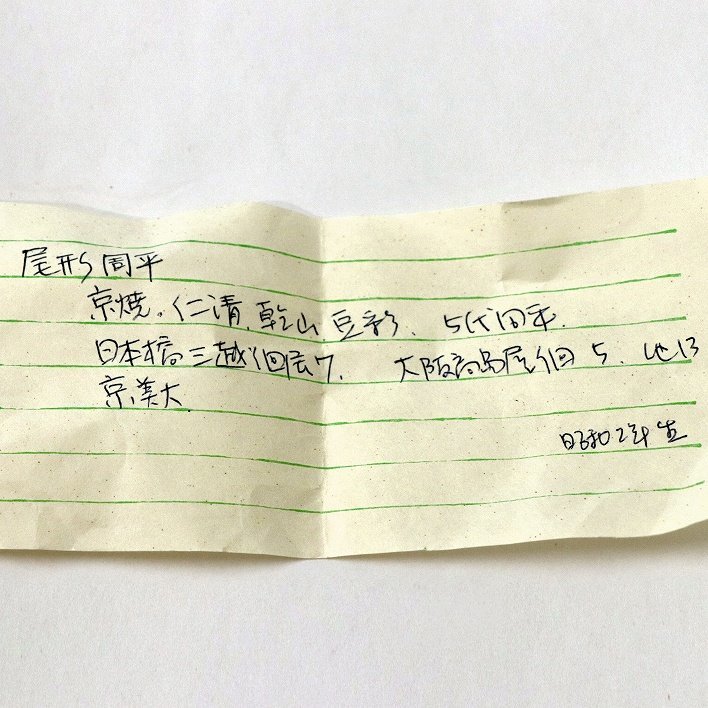 尾形周平
京焼。仁清、乾山、豆彩、5代周平、
日本橋三越個展7、 大阪高島屋個5、他13
京美大
昭和2年生